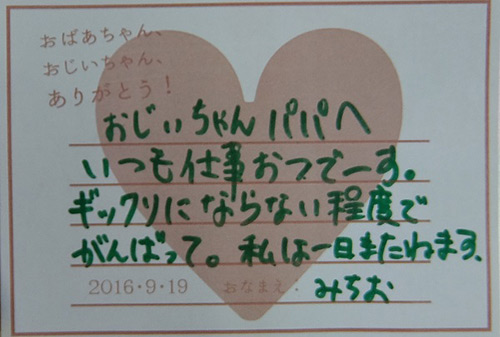 おばあちゃん、
おじいちゃん、
ありがとう！
おじいちゃんパパへ
いつも仕事おつでーす。
ギックリにならない程度で
がんばって。私は一日またねます。
2016・9・19 おなまえ： みちお